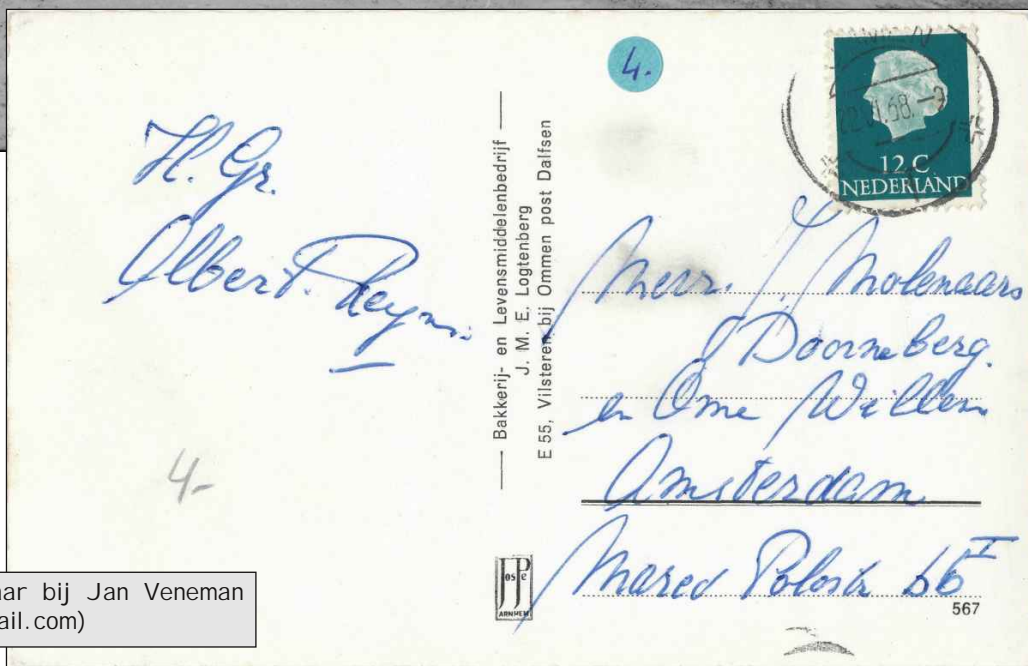 4.
12 C
NEDERLAND
H. Gr.
Albert.
Bakkerij- en Levensmiddelenbedrijf
J. M. E. Logtenberg
E 55, Vilsteren bij Ommen post Dalfsen
Mevr. J. Molenaars
Doorneberg.
en Ome Willem
Amsterdam
Marco Polostr 66 I
4-
JosPé
ARNHEM
567
aar bij Jan Veneman
ail.com)